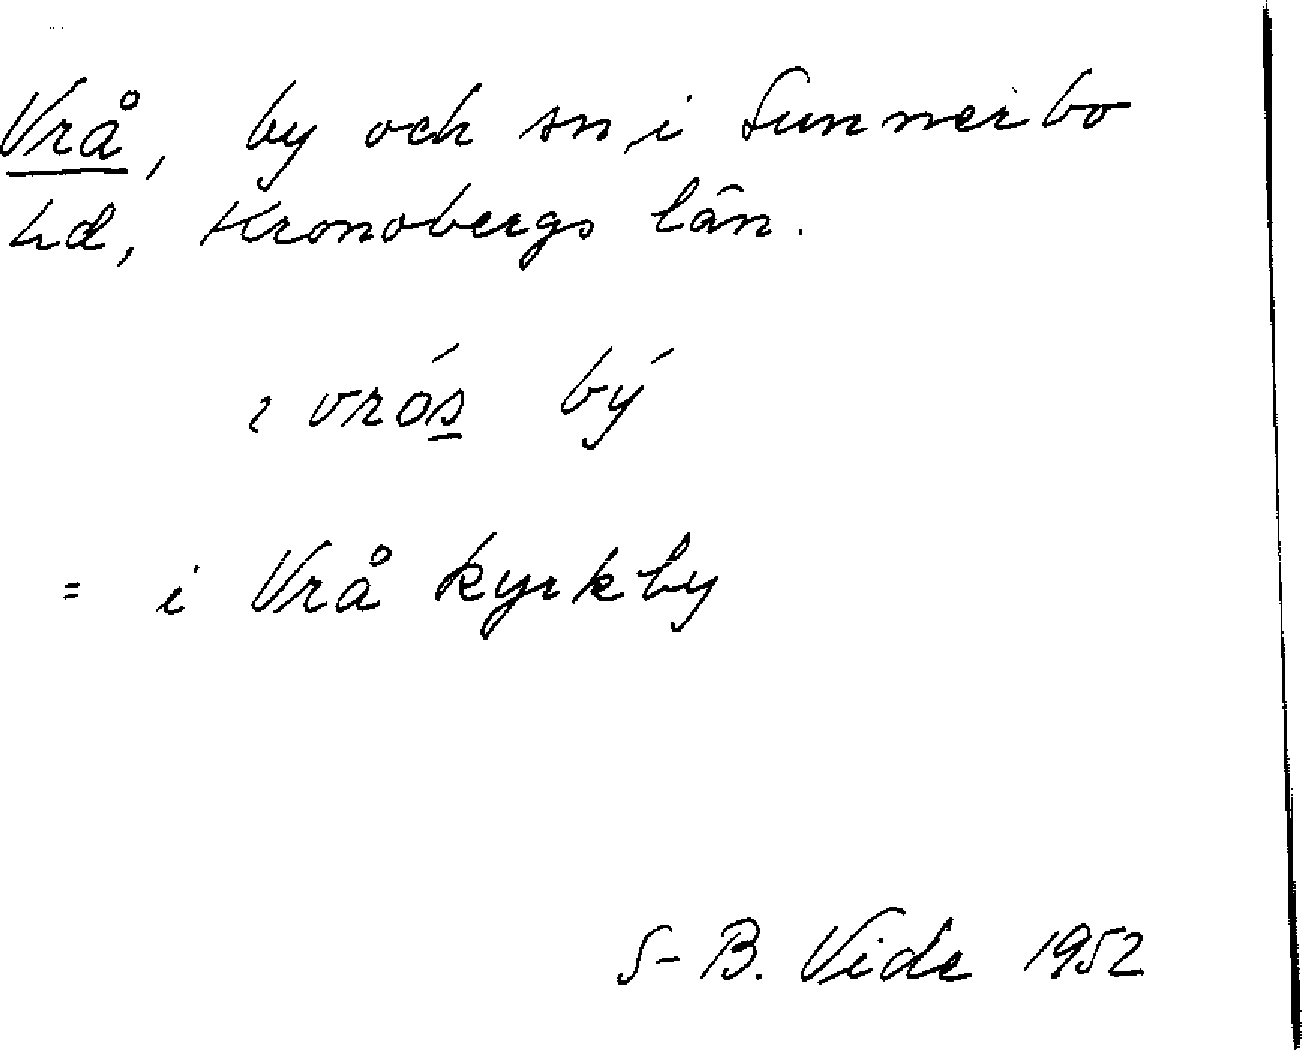 Vrå, by och sn i Sunnerbo
hd, Kronobergs län.
ı vrós bý
= i Vrå kyrkby
S-B. Vide 1952